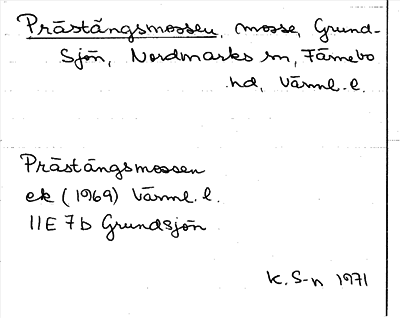 Prästängsmossen, mosse, Grund-
sjön, Nordmarks sn, Färnebo
hd, Värml. l.
Prästängsmossen
ek (1969) Värml. l.
11E 7b Grundsjön
K. S-n 1971